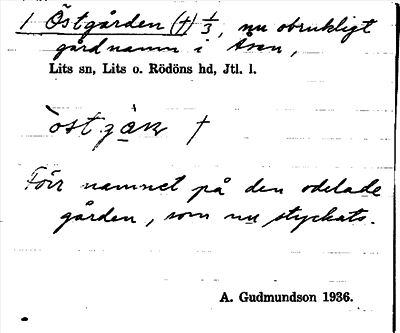 1 Östgården (†) 1/3, nu obrukligt
gårdnamn i Åsen,
Lits sn, Lits o. Rödöns hd, Jtl. l.
Förr namnet på den odelade
gården, som nu styckats.
A. Gudmundson 1936.